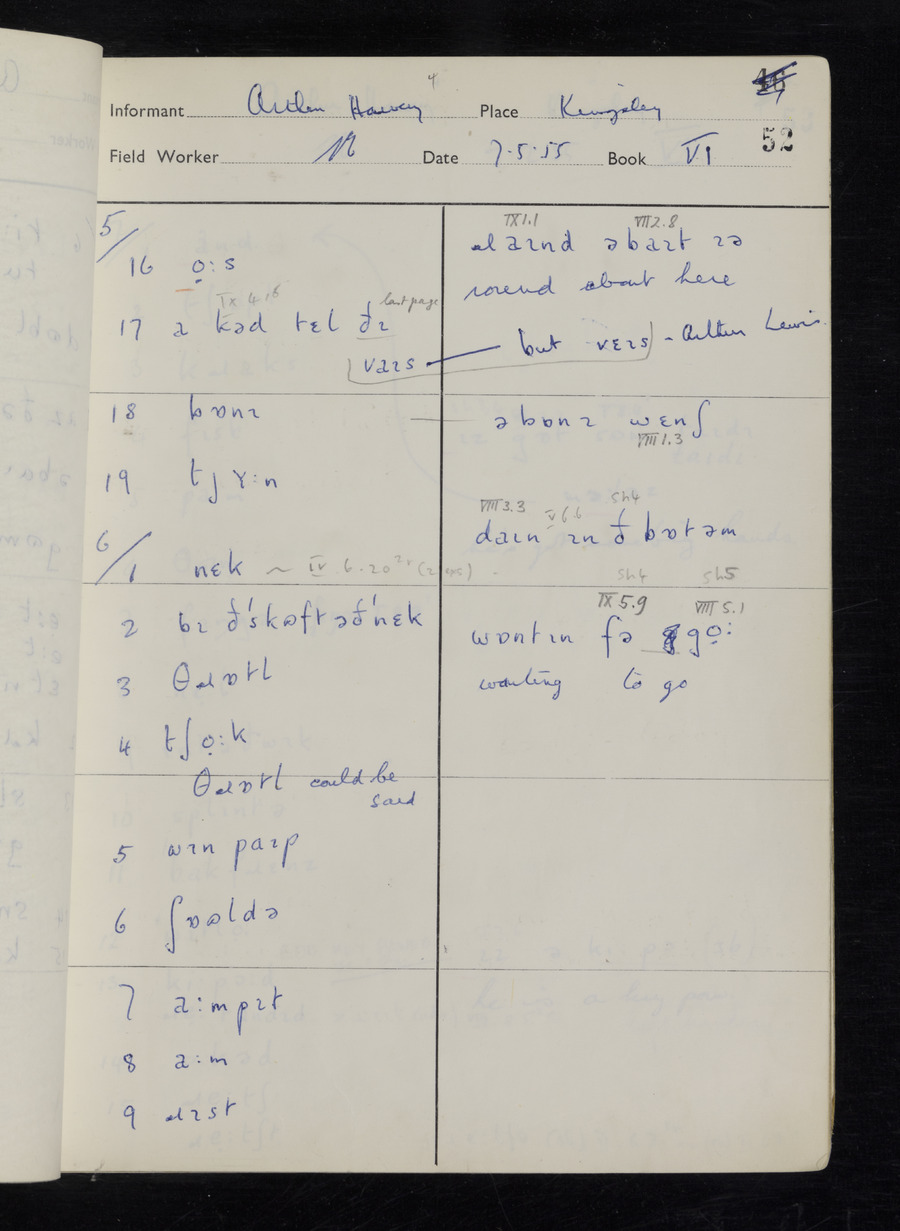 46
Informant Arthur Harvey 4 Place Kingsley
52
Field Worker Date 7.5.55 Book VI
5/
IX 1.1 VII 2.8
ɹaɪnd əbaɪt ɪə
16 ọ:s
round about here
IX 4.16 last page
17 a kəd tɛl ðɪ
vaɪs — but vɛɪs) - Arthur Lewis
18 bɒnɪ — ə bɒnɪ wɛnʃ
VIII 1.3
19 tjʏ:n
VIII 3.3 V 6.6 Sh4
daɪn ɪn ð bɒtəm
6/
1 nɛk ~ IV.6.20
Sh4 Sh5
IX 5.9 VIII 5.1
2 bɪ ð'skɒft əð'nɛk
wɒntɪn fə gọ:
3 θɹɒtl
wanting to go
4 tʃọ:k
θɹɒtl could be
said
5 wɪn paɪp
6 ʃɒəldə
7 a:mpɪt
8 a:m
9 ɹɪst